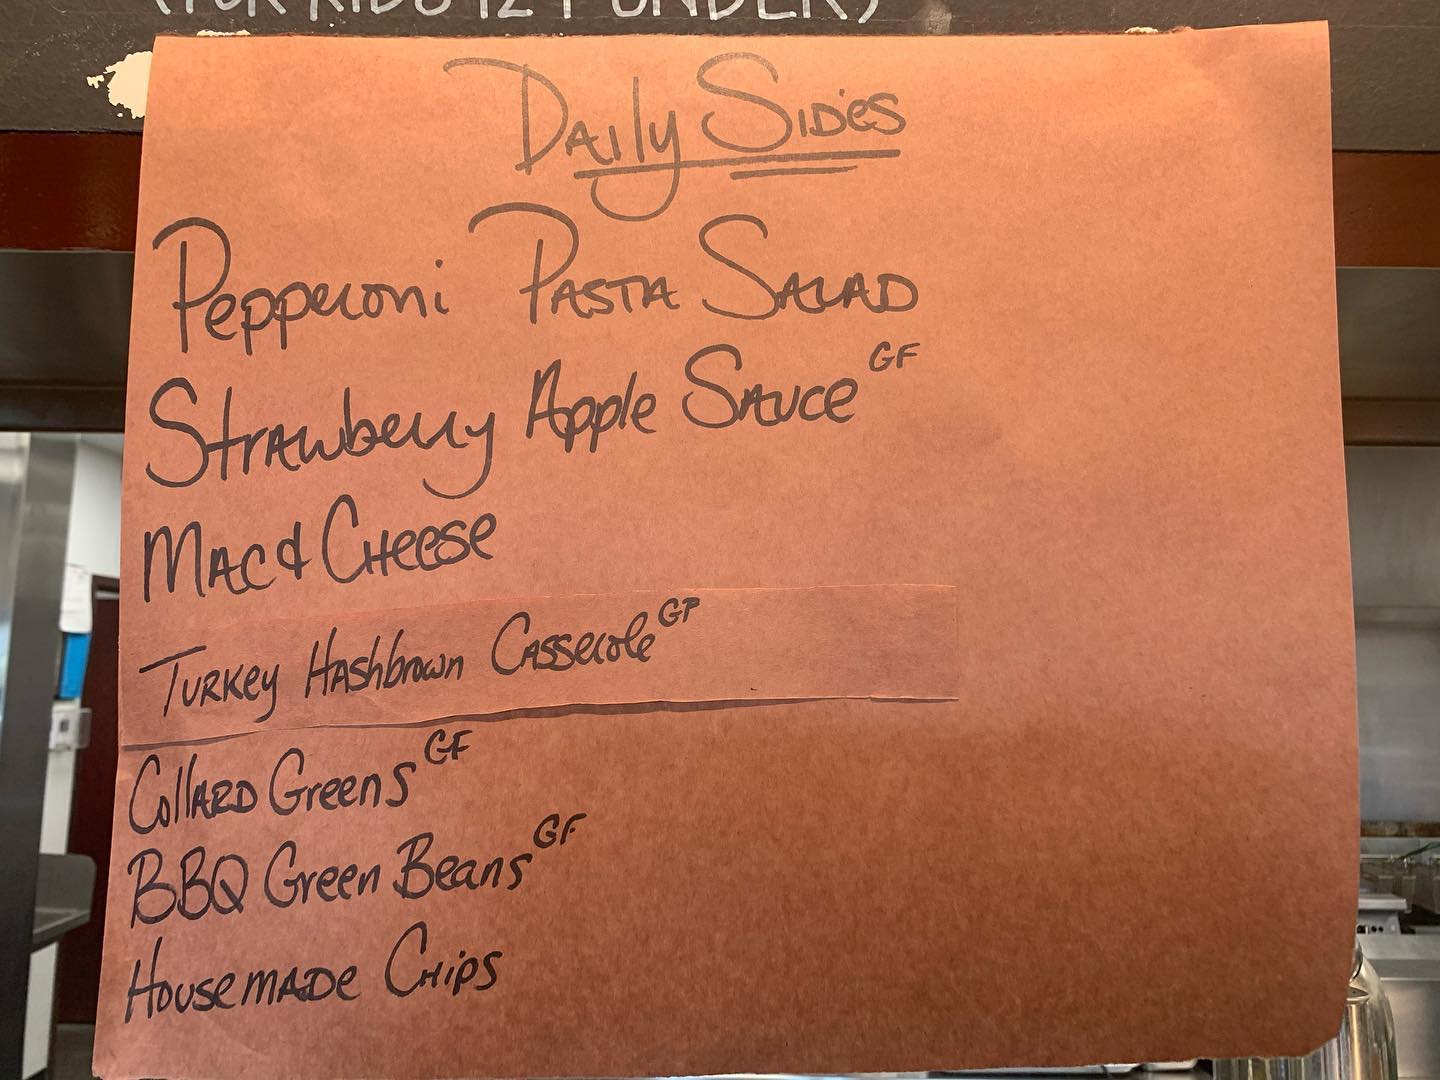 (FOR KIDS 12 & UNDER)
Daily Sides
Pepperoni Pasta Salad
Strawberry Apple Sauce GF
Mac & Cheese
Turkey Hashbrown Casserole GF
Collard Greens GF
BBQ Green Beans GF
Housemade Chips